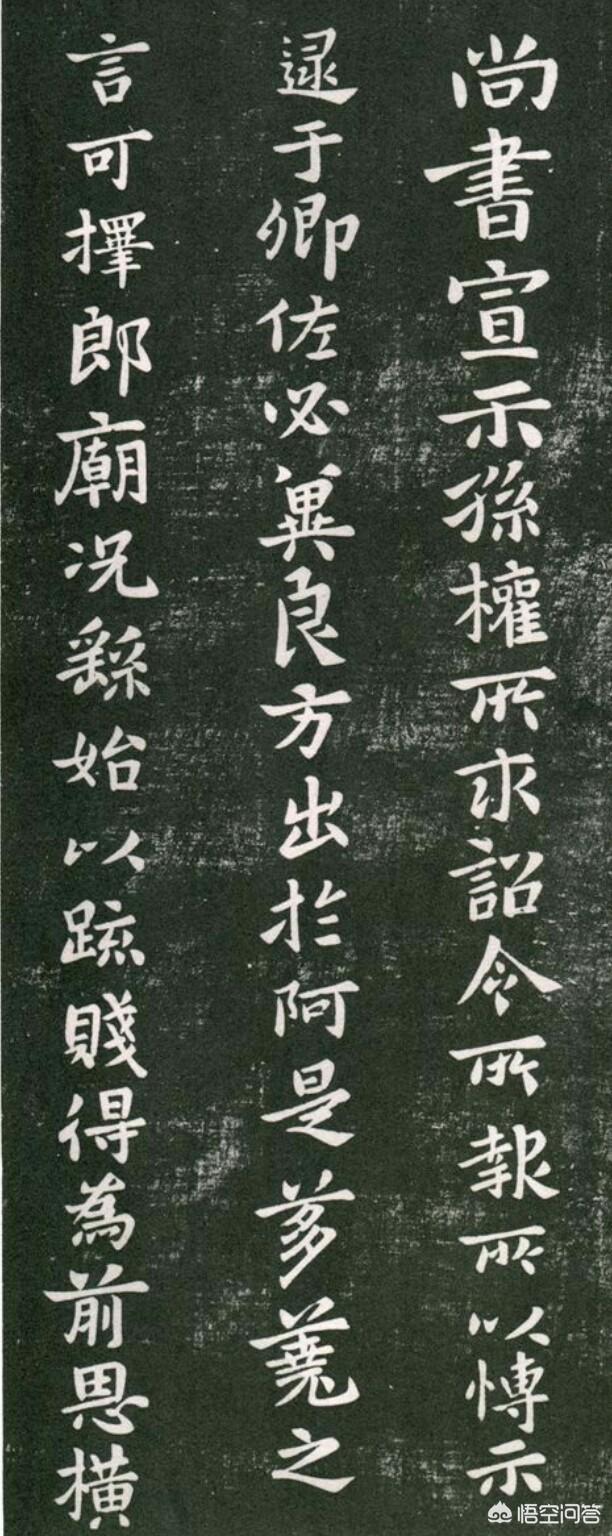 尚書宣示孫權所求詔令所報所以博示
逮于卿佐必冀良方出於阿是芻蕘之
言可擇郎廟況繇始以疏賤得為前恩橫
悟空问答